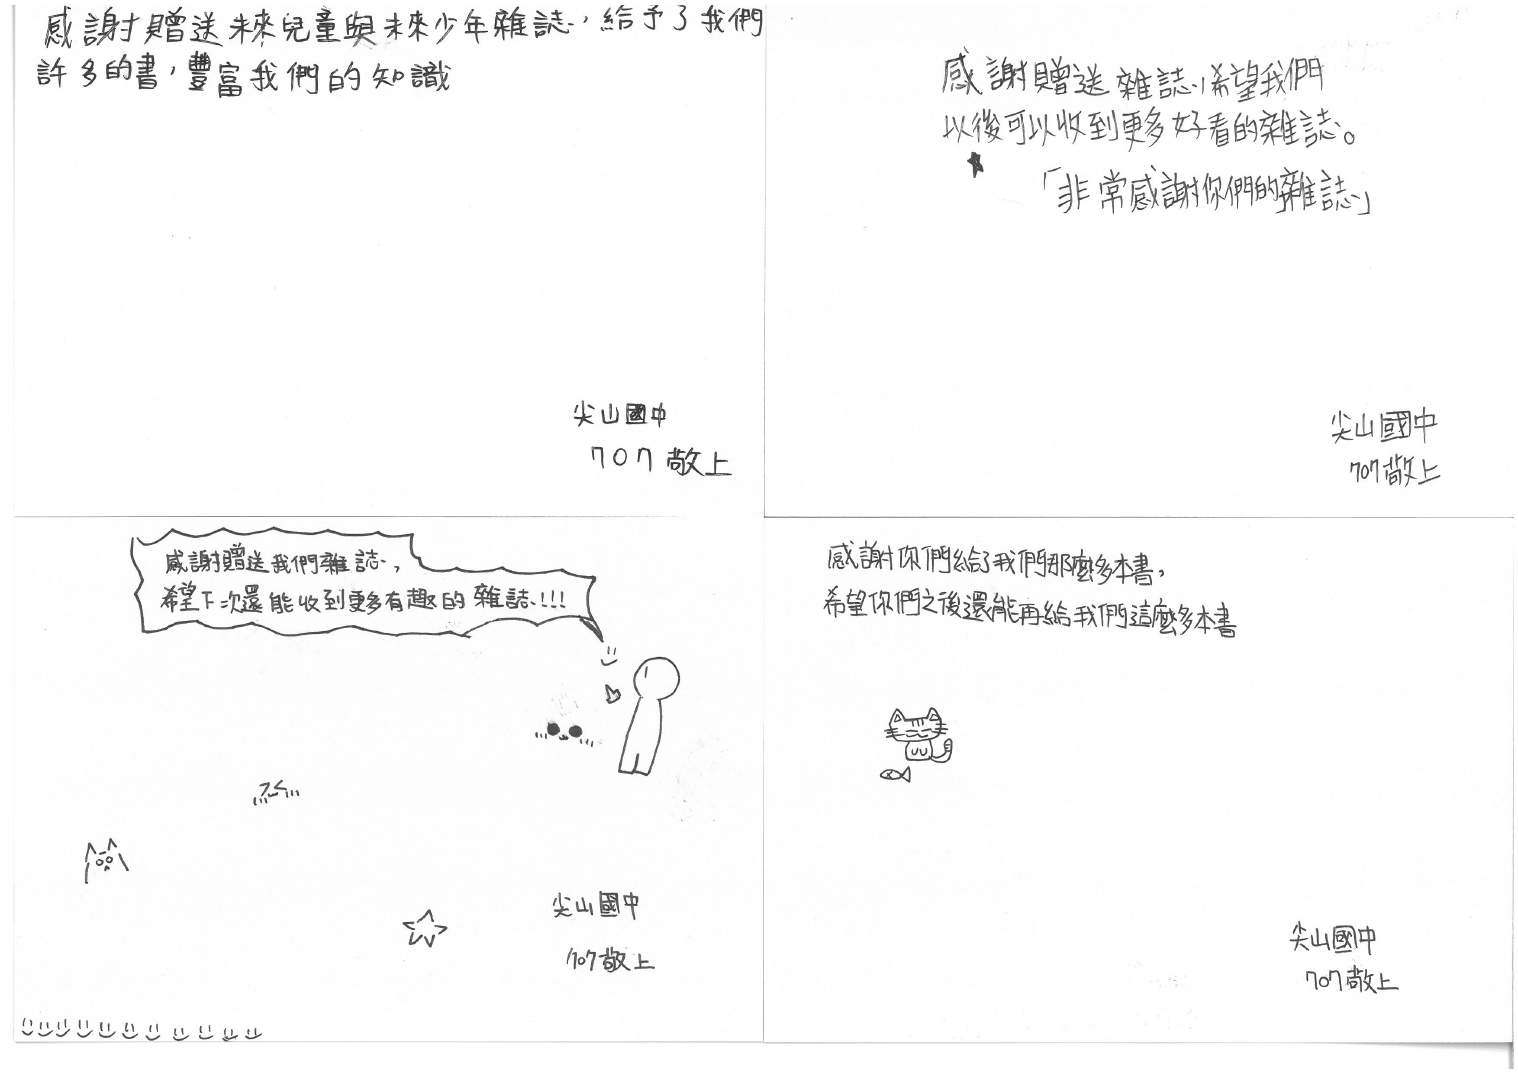 感謝贈送未來兒童與未來少年雜誌，給予了我們
許多的書，豐富我們的知識
尖山國中
707敬上
感謝贈送雜誌，希望我們
以後可以收到更多好看的雜誌。
「非常感謝你們的雜誌」
尖山國中
707敬上
感謝贈送我們雜誌，
希望下次還能收到更多有趣的雜誌!!!
尖山國中
707敬上
感謝你們給了我們那麼多本書，
希望你們之後還能再給我們這麼多本書
尖山國中
707敬上